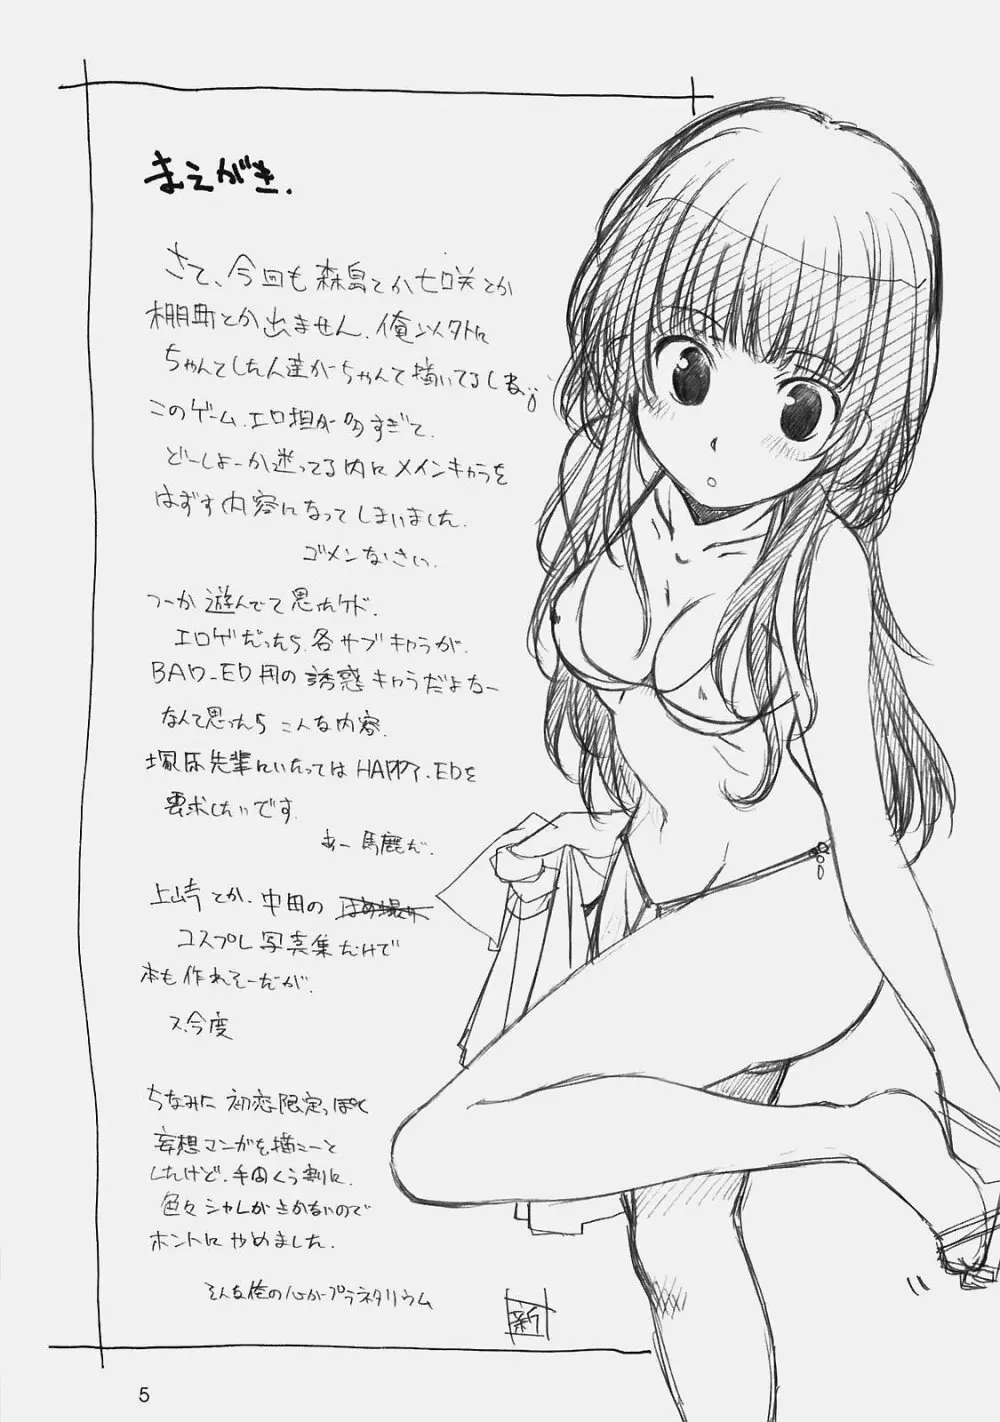 まえがき.
さて、今回も森島とか七咲とか
棚町とか出ません.俺以外に
ちゃんとした人達がちゃんと描いてるしね。
このゲーム.エロ担が多すぎて.
どーしよーか迷ってる内にメインキャラを
はずす内容になってしまいました.
ゴメンなさい.
つーか遊んでて思ったケド.
エロゲだったら各サブキャラが.
BAD-ED用の誘惑キャラだよなー
なんて思ったらこんな内容.
塚原先輩にいたってはHAPPY.EDを
要求したいです.
あー馬鹿だ.
上崎とか.中田の
コスプレ写真集だけで
本も作れそーだが.
ス.今度
ちなみに初恋限定っぽく
妄想マンガを描こーと
したけど.手間くう割に.
色々シャレがきかないので
ホントにやめました.
そんな俺の心がプラネタリウム
新
5